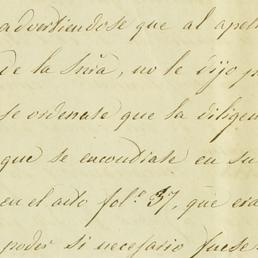 advirtiendose que al apel
de la Sría, no le dijo p
se ordenase que la diligen
que se encondiase en su
en el acto fol.º 37, que era
poder si necesario fuese